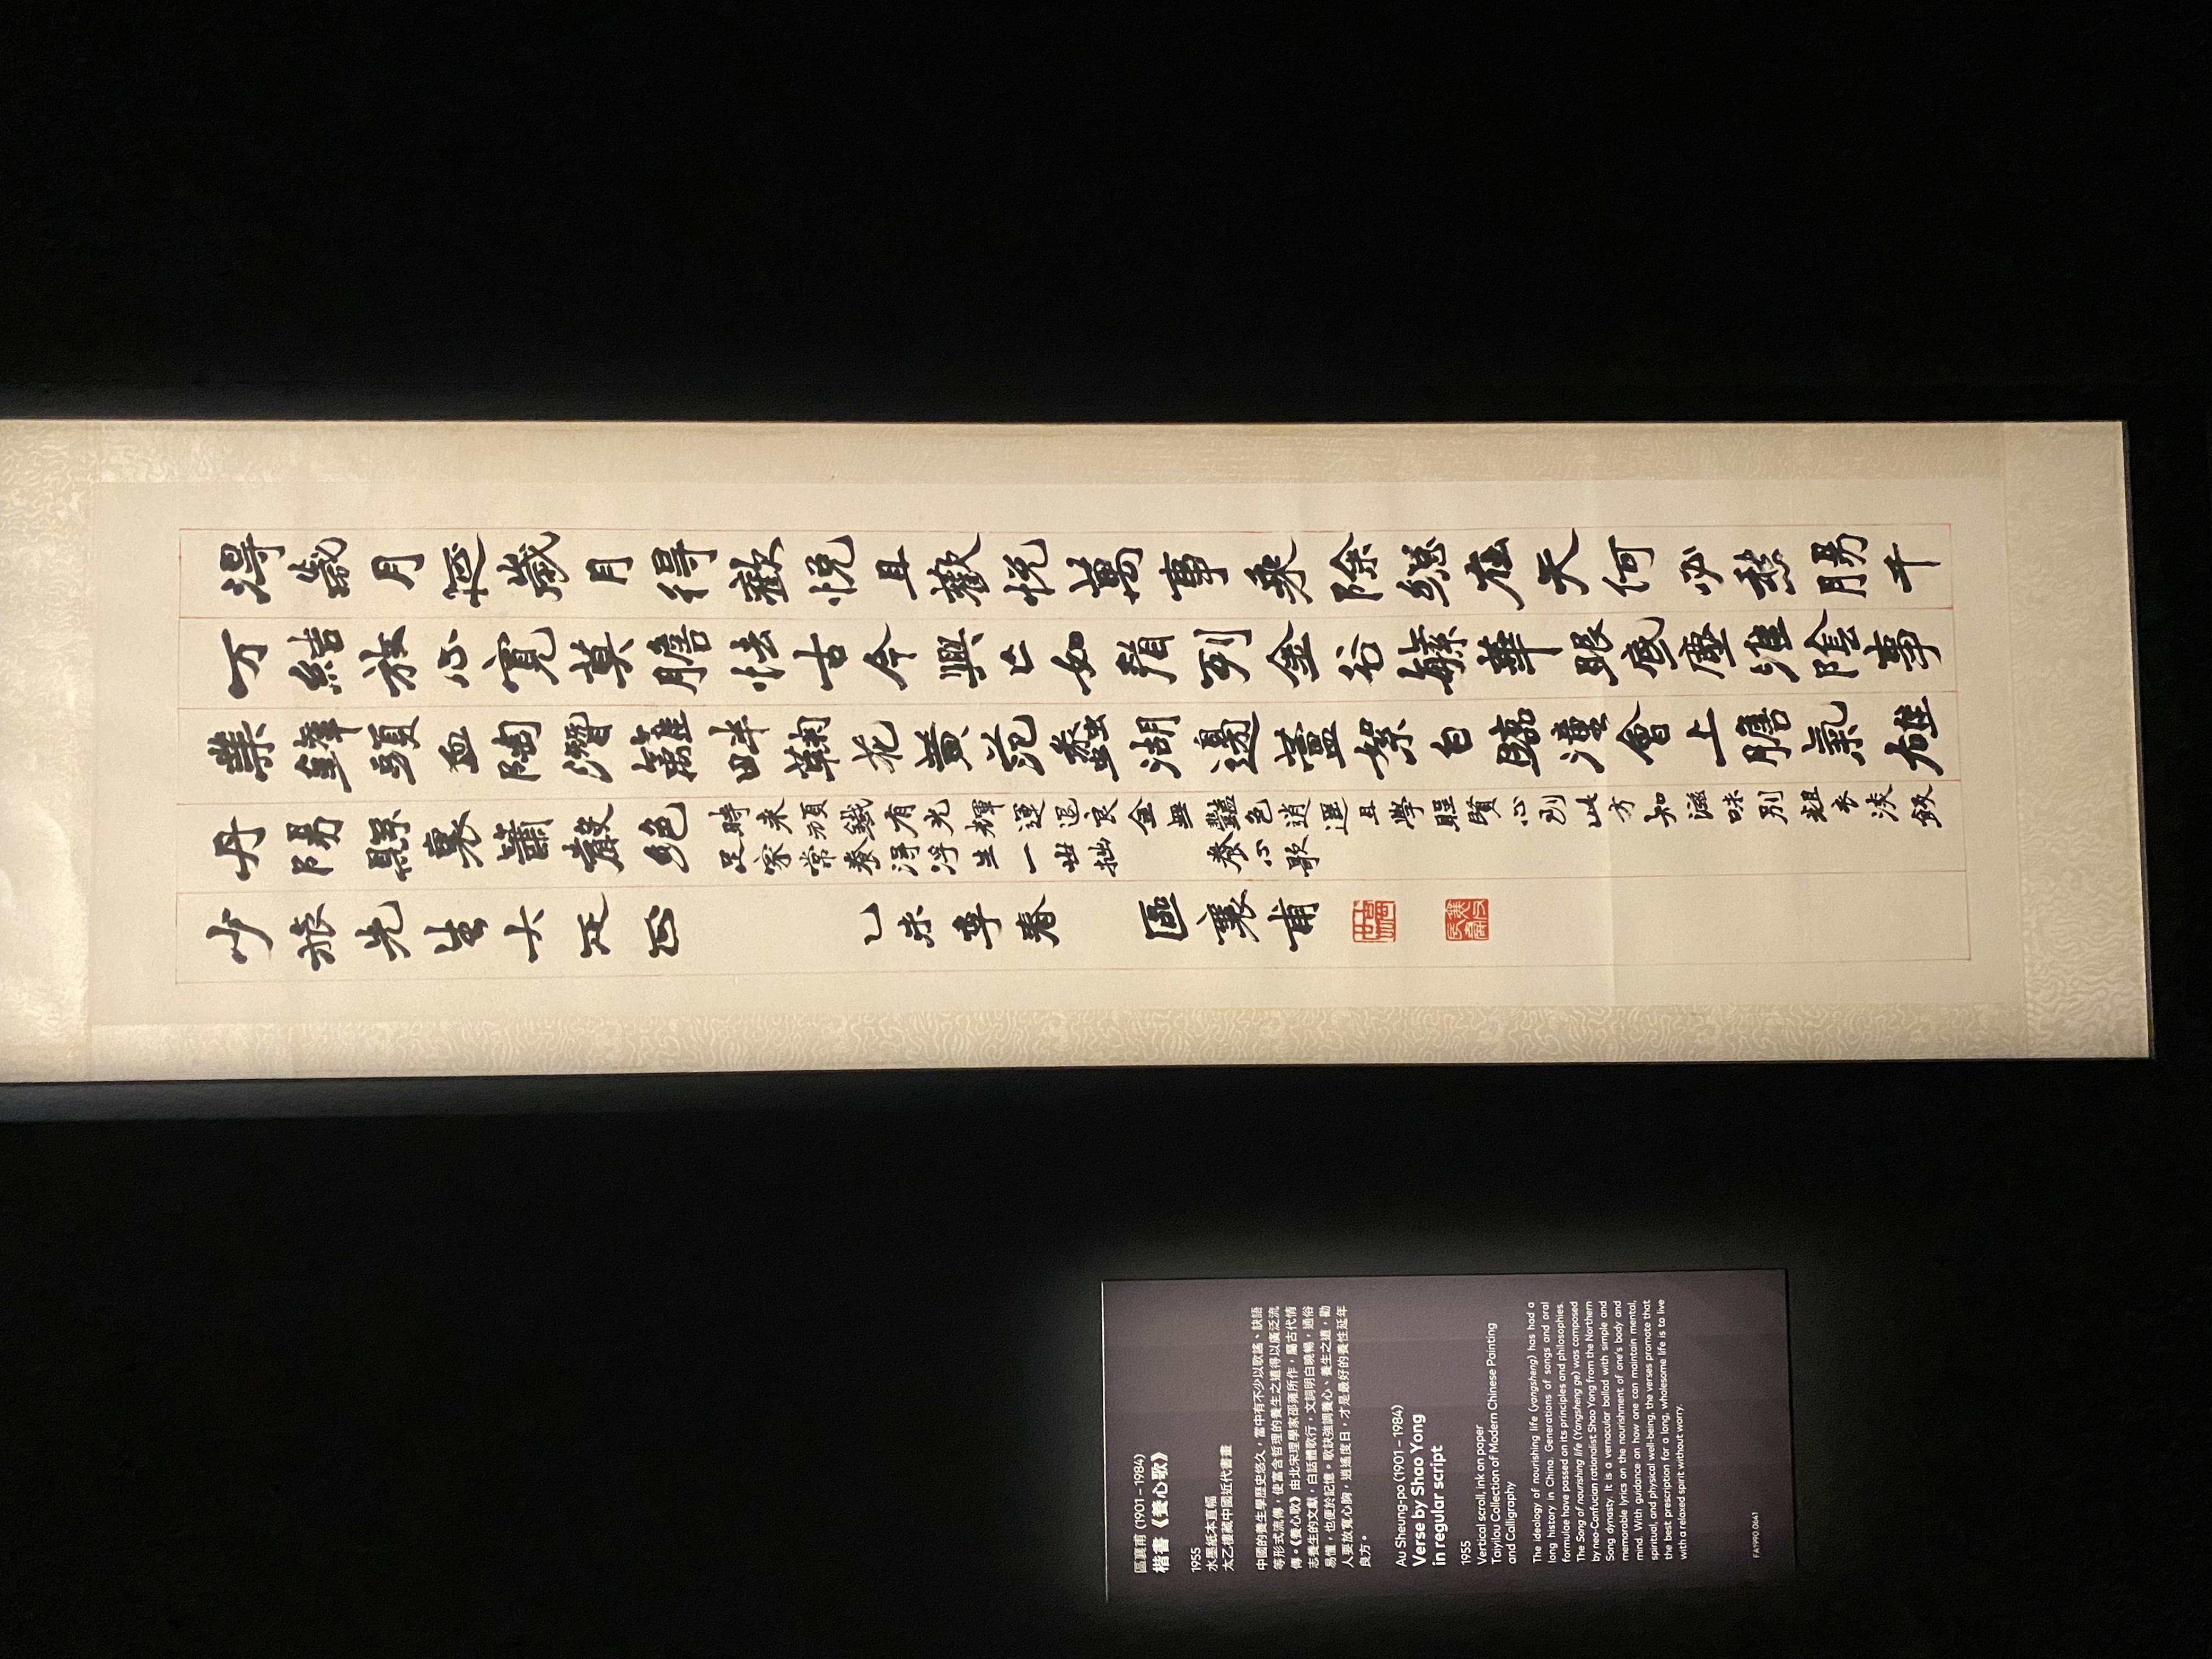 得歲月延歲月得歡悅且歡悅萬事乘除總在天何必愁腸千
万結放心寬莫膽怯古今興亡如眉列金谷繁華眼底塵淮陰事
業鋒頭血陶潛籬畔鞠花黃范蠡湖邊蘆絮白臨潼會上膽氣雄
丹陽縣裏簫聲絕
時来頑鐵有光輝運退良金無豔色逍遥且學聖賢心到此方知滋味別粗衣淡飯
足家常養得浮生一世拙 養心歌
少旅先生大疋正 乙未季春 區襄甫
區襄甫 (1901 – 1984)
楷書《養心歌》
1955
水墨紙本直幅
太乙樓藏中國近代書畫
中國的養生學歷史悠久，當中有不少以歌謠、訣語
等形式流傳，使富含哲理的養生之道得以廣泛流
傳。《養心歌》由北宋理學家邵雍所作，屬古代情
志養生的文獻，白話體歌行，文詞明白曉暢，通俗
易懂，也便於記憶。歌訣強調養心、養生之道，勸
人要放寬心胸，逍遙度日，才是最好的養性延年
良方。
Au Sheung-po (1901 – 1984)
Verse by Shao Yong
in regular script
1955
Vertical scroll, ink on paper
Taiyilou Collection of Modern Chinese Painting
and Calligraphy
The ideology of nourishing life (yangsheng) has had a
long history in China. Generations of songs and oral
formulae have passed on its principles and philosophies.
The Song of nourishing life (Yangsheng ge) was composed
by neo-Confucian rationalist Shao Yong from the Northern
Song dynasty. It is a vernacular ballad with simple and
memorable lyrics on the nourishment of one's body and
mind. With guidance on how one can maintain mental,
spiritual, and physical well-being, the verses promote that
the best prescription for a long, wholesome life is to live
with a relaxed spirit without worry.
FA1990.0641